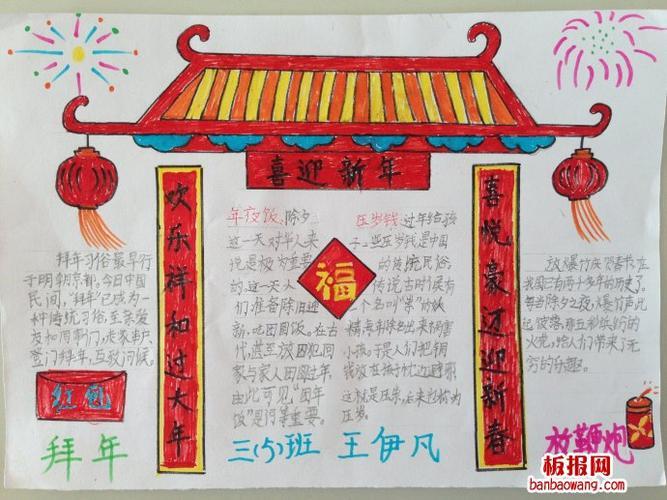 喜迎新年
欢乐祥和过大年
喜悦豪迈迎新春
拜年习俗最早行
于明朝京都。今日中国
民间，“拜年”已成为一
种传统习俗至亲爱
友如同事门
登门拜年，互敬问候。
红包
拜年
年夜饭、除夕
这一天对华人来
说是极为重要
的。这一天人
们准备除旧迎
新，吃团圆饭。在古
代，甚至被囚犯回
家与家人团圆过年，
由此可见“团年
饭”是何等重要。
福
压岁钱：过年给孩
子一些压岁钱是中国
的传统民俗。
传说古时候有
一个名叫“祟”的妖
精，专在除夕出来祸害
小孩。于是人们把铜
钱放在孩子枕边避邪
这就是压祟，后来包称为
压岁。
三(5)班 王伊凡
放爆竹庆贺春节在
我国已有两千多年的历史了。
每当除夕之夜，爆竹声此
起彼落，那五彩缤纷的
火花，给人们带来了无
穷的乐趣。
放鞭炮
板报网
banbaowang.com